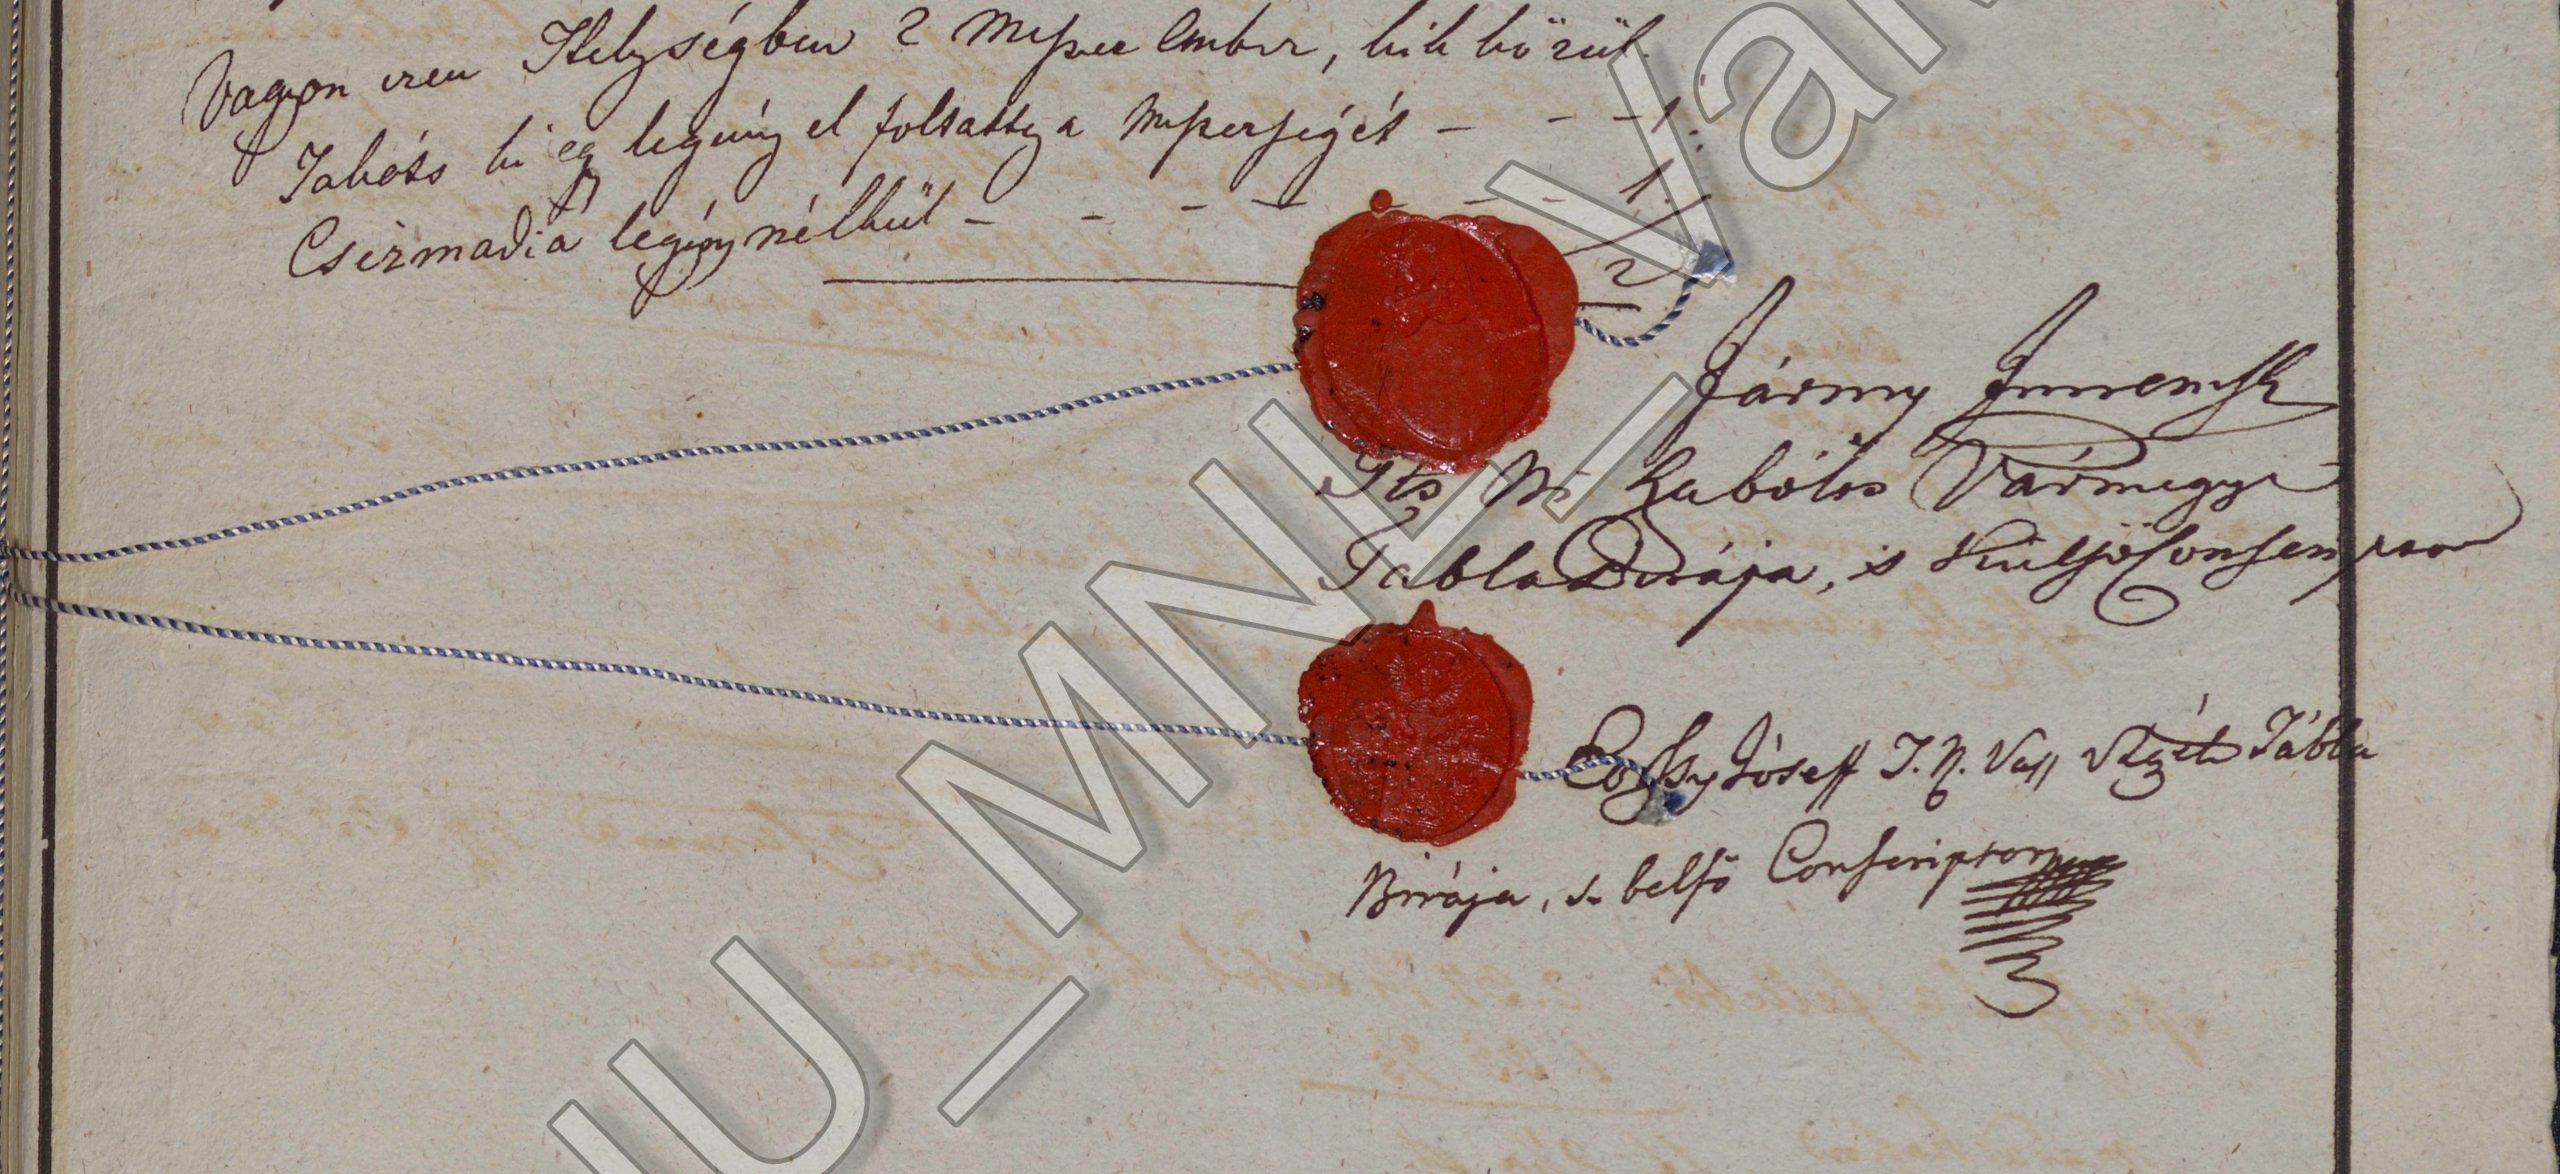 Vagyon ezen Helységben 2 Mester Ember, kik közül
Takáts ki egy legény el foltattya Mesterségét - - - 1.
Csizmadia legény nélkül - - - - - - 1.
2
Jármy Imre mk
Tks Ns Szabólts Vármegye
Tabla Birája, is Külső Conscriptor
József T. N. Vass Vgye Tábla
Birája, s. belső Conscriptor
HU_MNL_VaML_